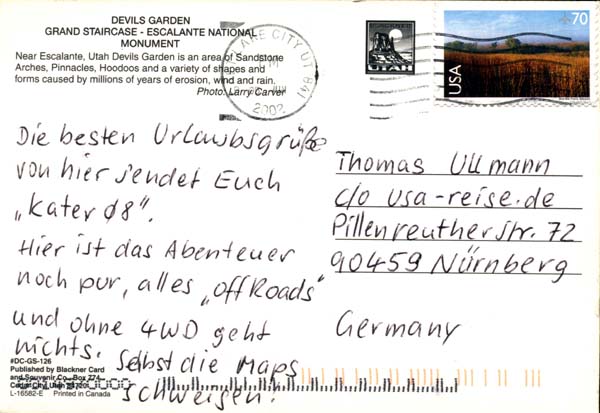 DEVILS GARDEN
GRAND STAIRCASE - ESCALANTE NATIONAL
MONUMENT
Near Escalante, Utah Devils Garden is an area of Sandstone
Arches, Pinnacles, Hoodoos and a variety of shapes and
forms caused by millions of years of erosion, wind and rain.
Photo: Larry Carver
LAKE CITY UT 841
PM
2002
UTAH
70
USA
Die besten Urlaubsgrüße
von hier sendet Euch
„Kater Ø8".
Hier ist das Abenteuer
noch pur, alles „Off Roads"
und ohne 4WD geht
nichts. Selbst die Maps
schweigen!
Thomas Ullmann
c/o usa-reise.de
Pillenreuther Str. 72
90459 Nürnberg
Germany
#DC-GS-126
Published by Blackner Card
and Souvenir Co. Box 274
Cedar City, Utah 84720
L-16582-E Printed in Canada